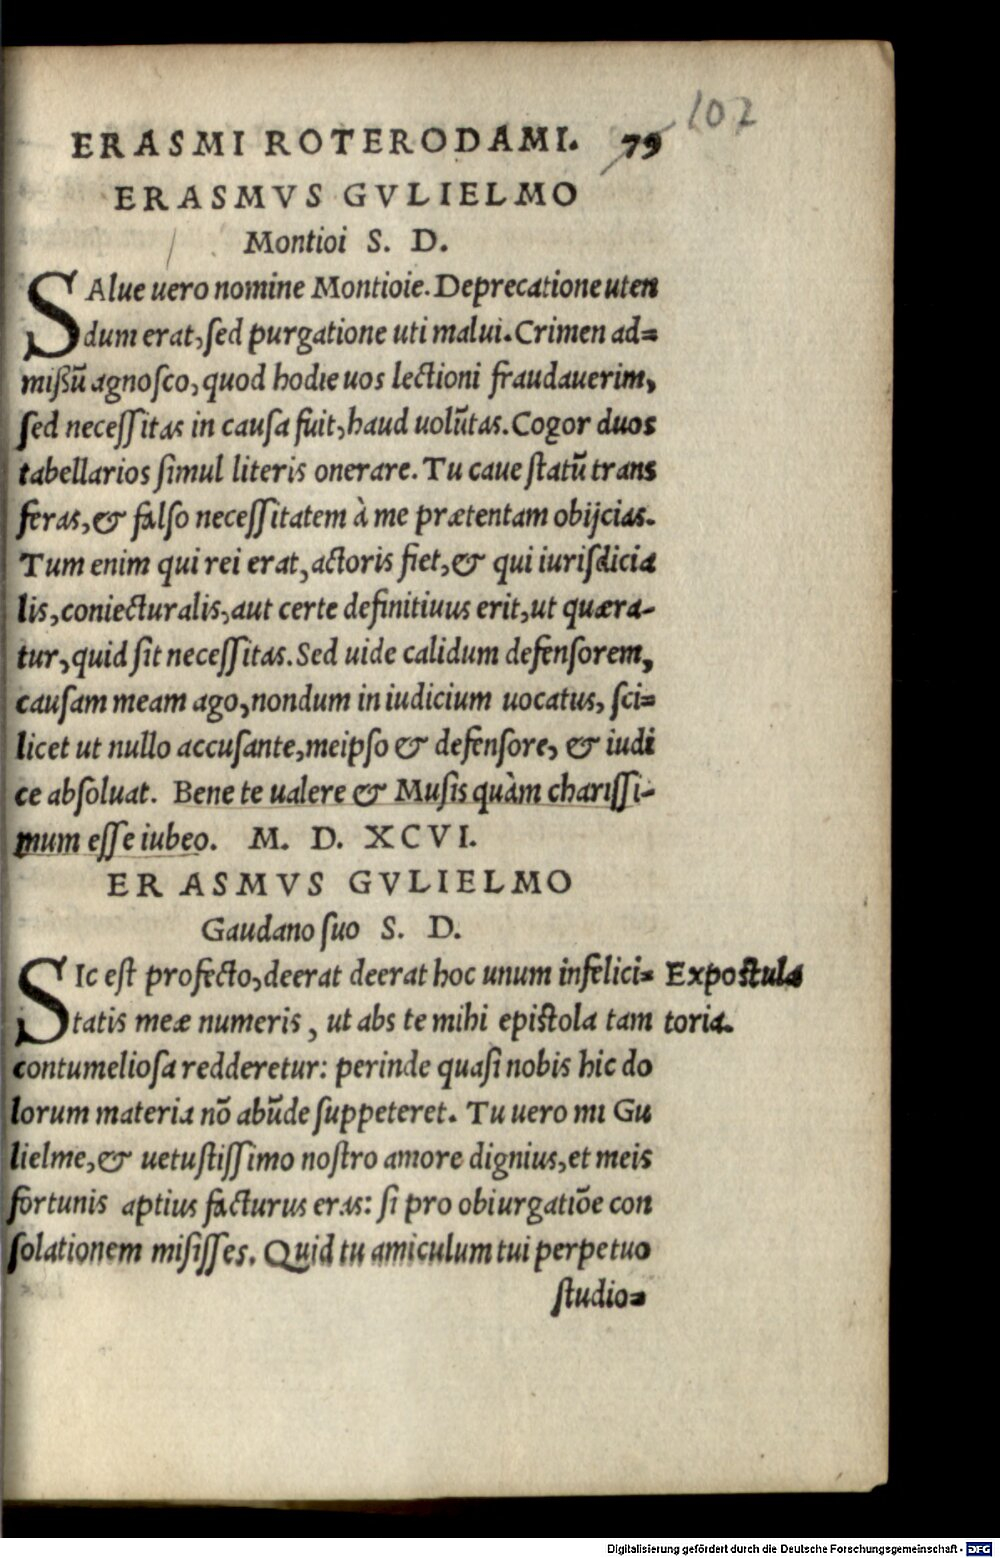 102
ERASMI ROTERODAMI. 79
ERASMVS GVLIELMO
Montioi S. D.
SAlue uero nomine Montioie. Deprecatione uten
dum erat, sed purgatione uti malui. Crimen ad=
mißū agnosco, quod hodie uos lectioni fraudauerim,
sed necessitas in causa fuit, haud uolūtas. Cogor duos
tabellarios simul literis onerare. Tu caue statū trans
feras, & falso necessitatem à me prætentam obijcias.
Tum enim qui rei erat, actoris fiet, & qui iurisdicia
lis, coniecturalis, aut certe definitiuus erit, ut quæra-
tur, quid sit necessitas. Sed uide calidum defensorem,
causam meam ago, nondum in iudicium uocatus, sci=
licet ut nullo accusante, meipso & defensore, & iudi
ce absoluat. Bene te ualere & Musis quàm charissi-
mum esse iubeo. M. D. XCVI.
ERASMVS GVLIELMO
Gaudano suo S. D.
SIc est profecto, deerat deerat hoc unum infelici= Expostula
tatis meæ numeris, ut abs te mihi epistola tam toria.
contumeliosa redderetur: perinde quasi nobis hic do
lorum materia nō abūde suppeteret. Tu uero mi Gu
lielme, & uetustissimo nostro amore dignius, et meis
fortunis aptius facturus eras: si pro obiurgatiōe con
solationem misisses. Quid tu amiculum tui perpetuo
studio=
Digitalisierung gefördert durch die Deutsche Forschungsgemeinschaft - DFG